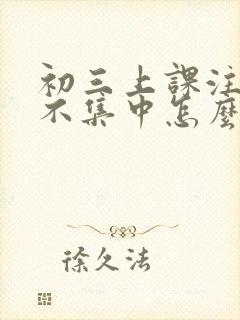 初三上課注
不集中怎麼
徐久法